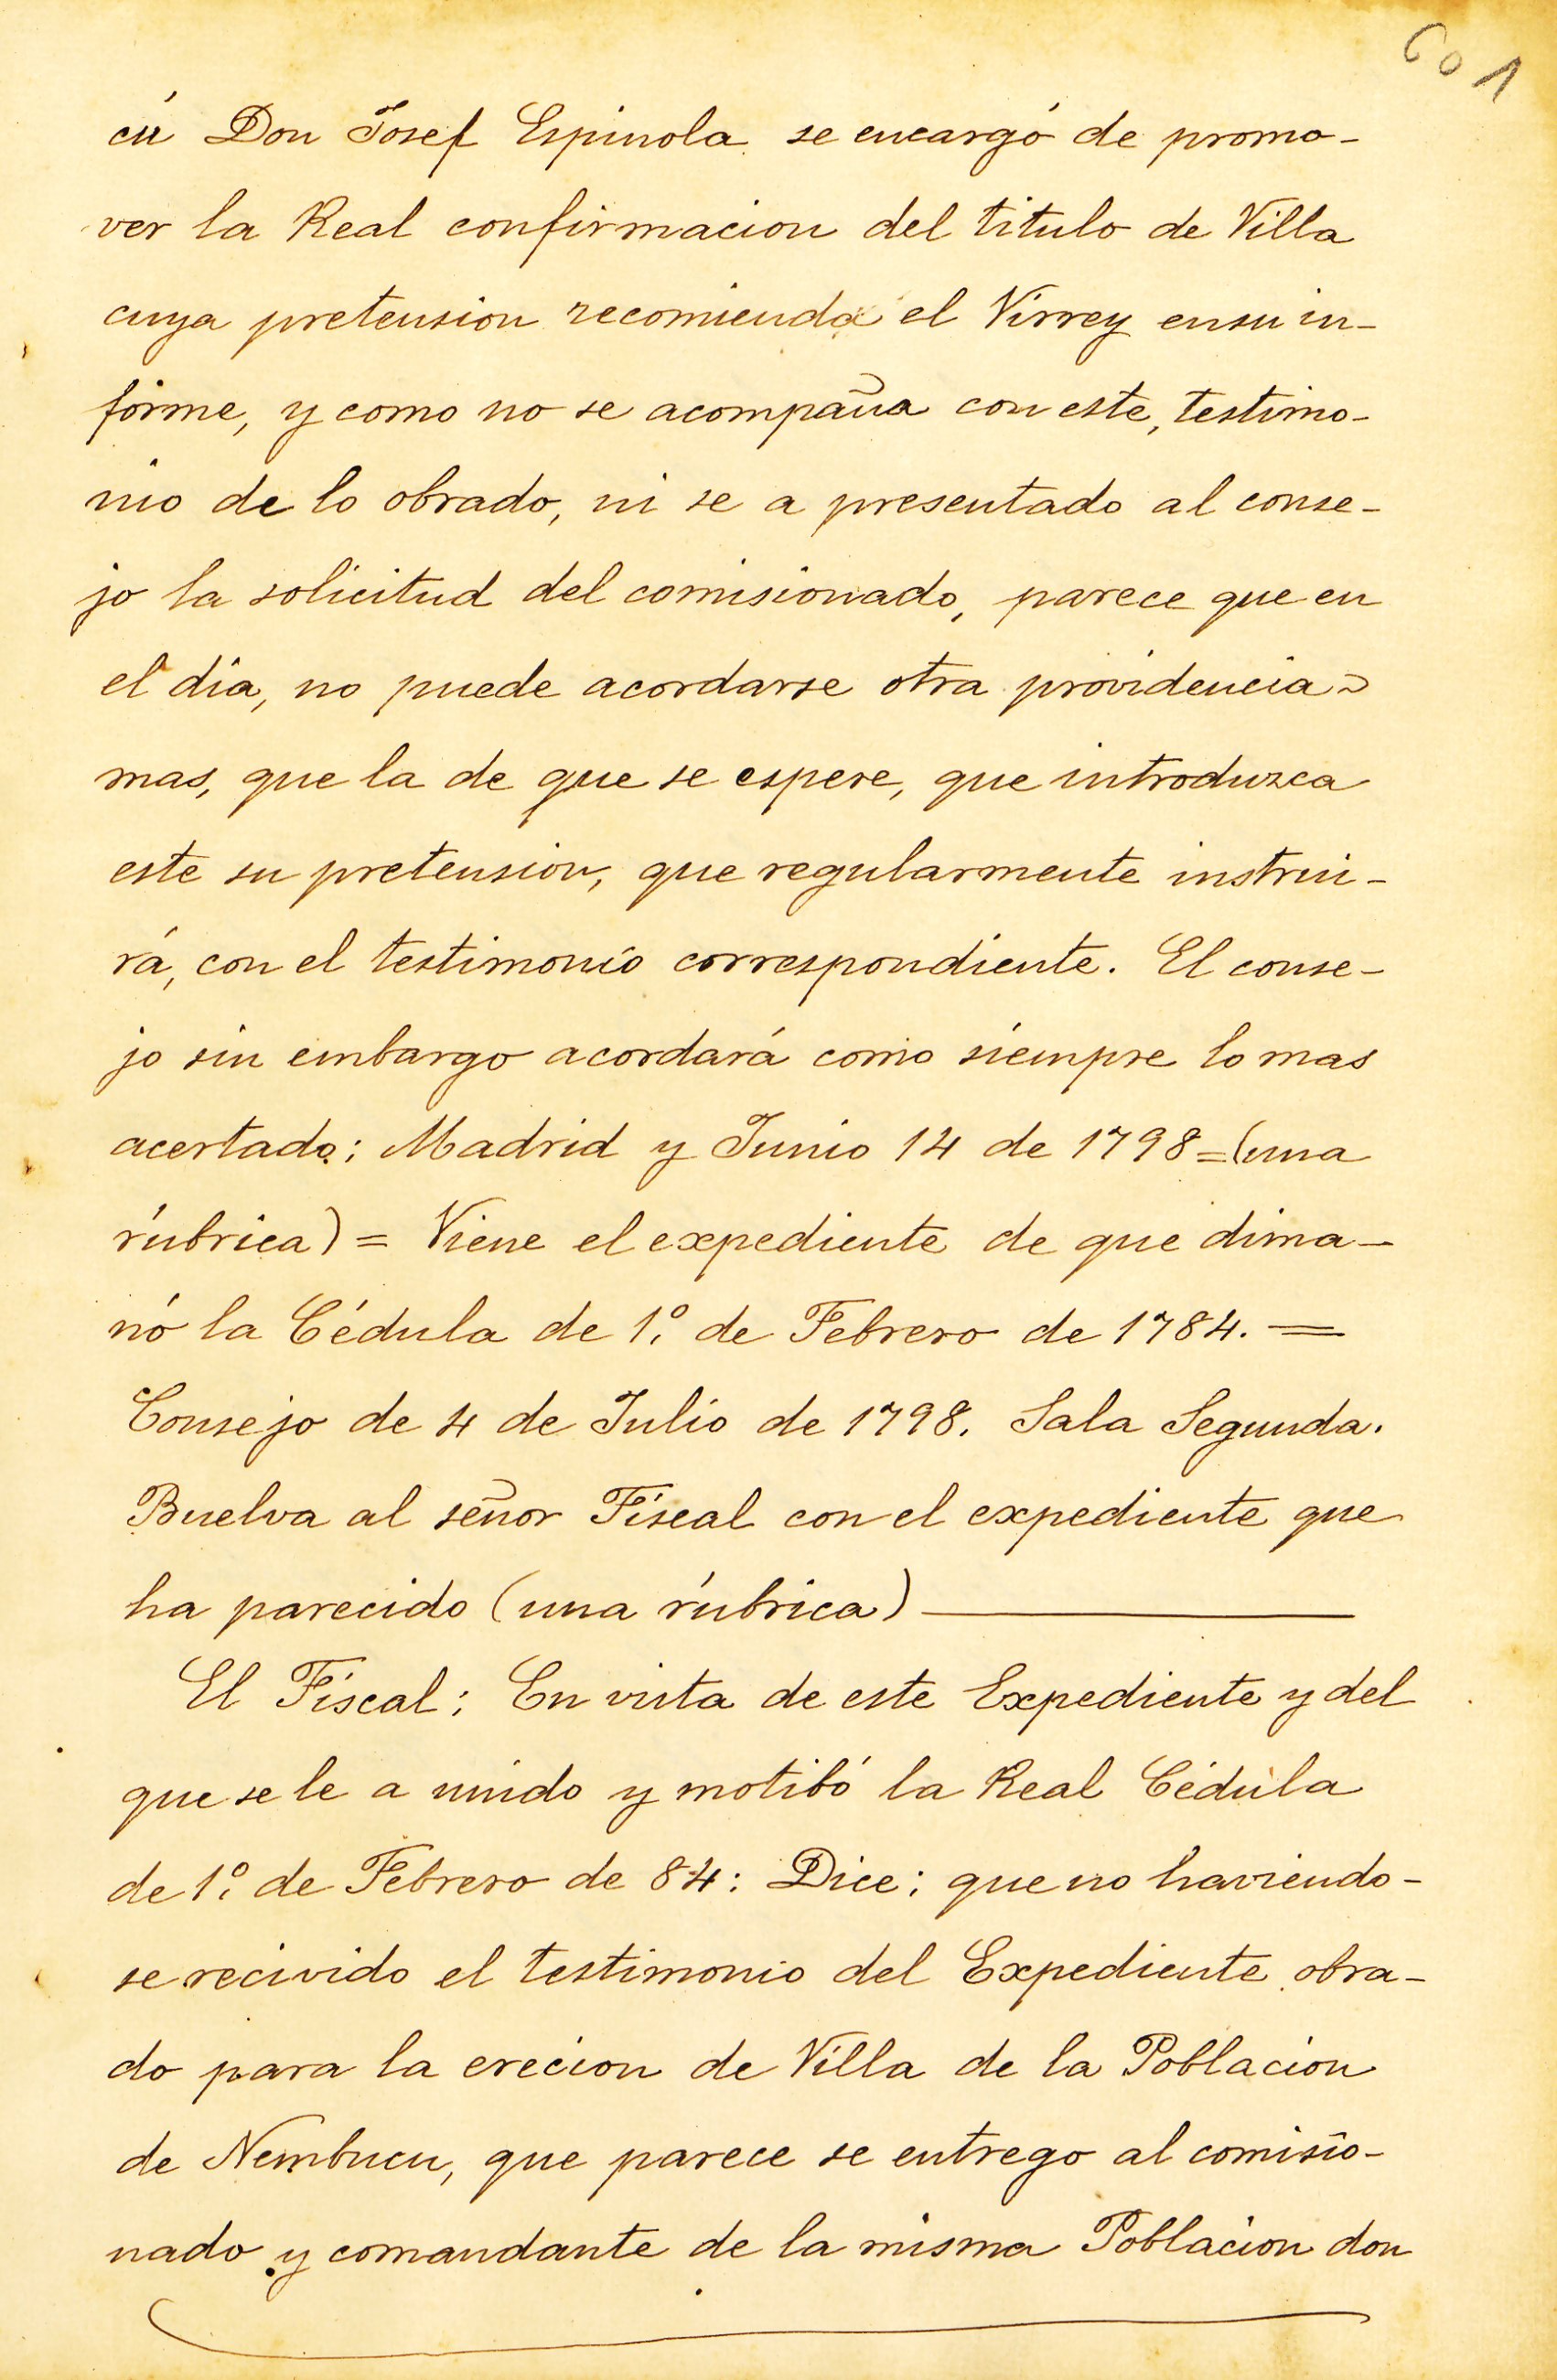 601
cú Don Josef Espinola se encargó de promo-
ver la Real confirmacion del titulo de Villa
cuya pretension recomienda el Virrey ensu in-
forme, y como no se acompaña con este, testimo-
nio de lo obrado, ni se a presentado al conse-
jo la solicitud del comisionado, parece que en
el dia, no puede acordarse otra providencia
mas, que la de que se espere, que introduzca
este su pretension, que regularmente instrui-
rá, con el testimonio correspondiente. El conse-
jo sin embargo acordará como siempre lo mas
acertado; Madrid y Junio 14 de 1798 = (una
rúbrica) = Viene el expediente de que dima-
nó la Cédula de 1º. de Febrero de 1784. =
Consejo de 4 de Julio de 1798. Sala Segunda.
Buelva al señor Fiscal con el expediente que
ha parecido (una rúbrica)
El Fiscal; En vista de este Expediente y del
que se le a unido y motibó la Real Cédula
de 1º. de Febrero de 84: Dice; que no haviendo-
se recivido el testimonio del Expediente obra-
do para la erecion de Villa de la Poblacion
de Nembucu, que parece se entrego al comisio-
nado y comandante de la misma Poblacion don